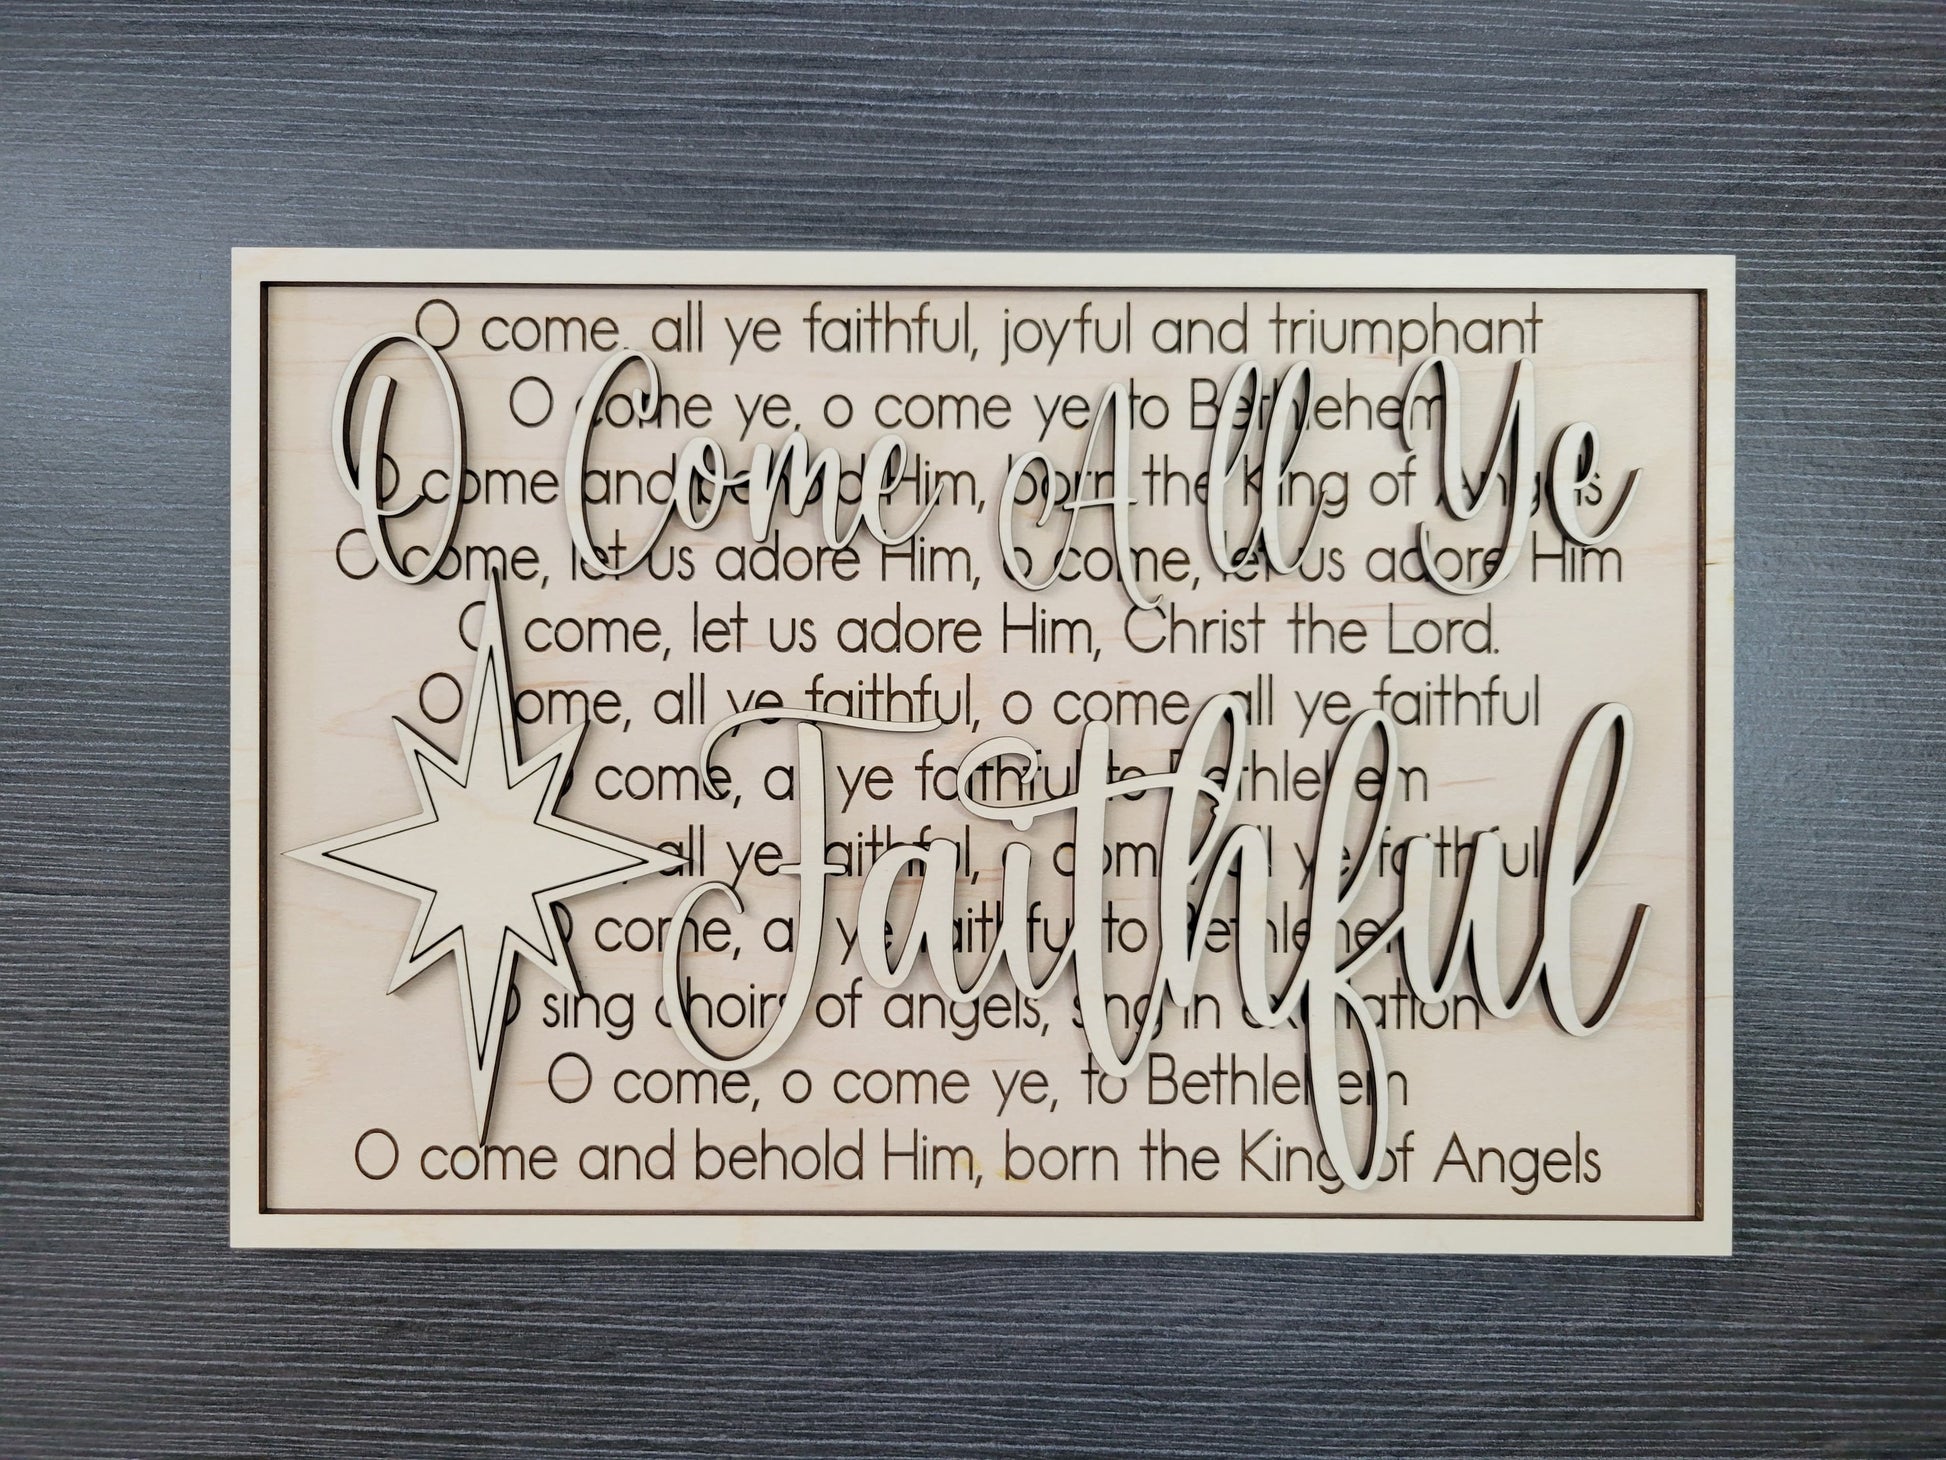 O come, all ye faithful, joyful and triumphant
O come ye, o come ye, to Bethlehem
O Come All Ye
O come and behold Him, born the King of Angels
O come, let us adore Him, o come, let us adore Him
O come, let us adore Him, Christ the Lord.
O come, all ye faithful, o come, all ye faithful
Faithful
O come, all ye faithful, to Bethlehem
all ye faithful, o come, all ye faithful
O come, all ye faithful, to Bethlehem
O sing choirs of angels, sing in exultation
O come, o come ye, to Bethlehem
O come and behold Him, born the King of Angels